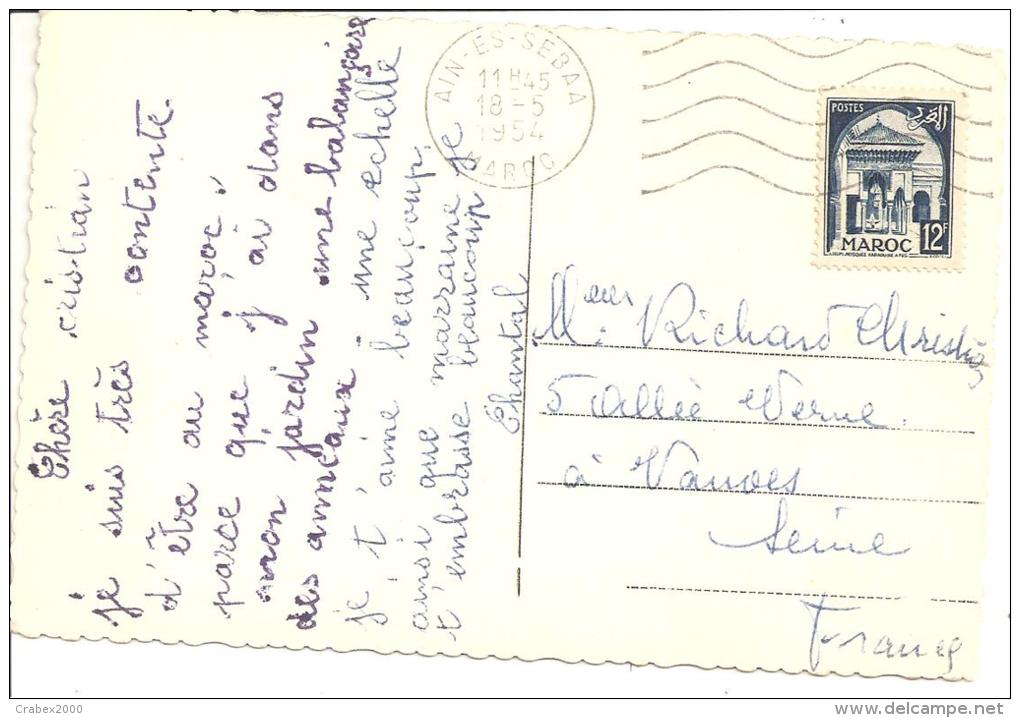 Chère cristian
je suis très contente
d'être au maroc.
parce que j'ai dans
mon jardin une balançoire
des anneaux une echelle
je t'aime beaucoup.
ainsi que marraine je
t'embrasse beaucoup
Chantal
AIN-ES-SEBAA
11H45
18-5
1954
MAROC
POSTES
المغرب
MAROC
12F
Richard Christian
5 Allée Verne.
à Vanves
Seine
France
Crabex2000
www.delcampe.net